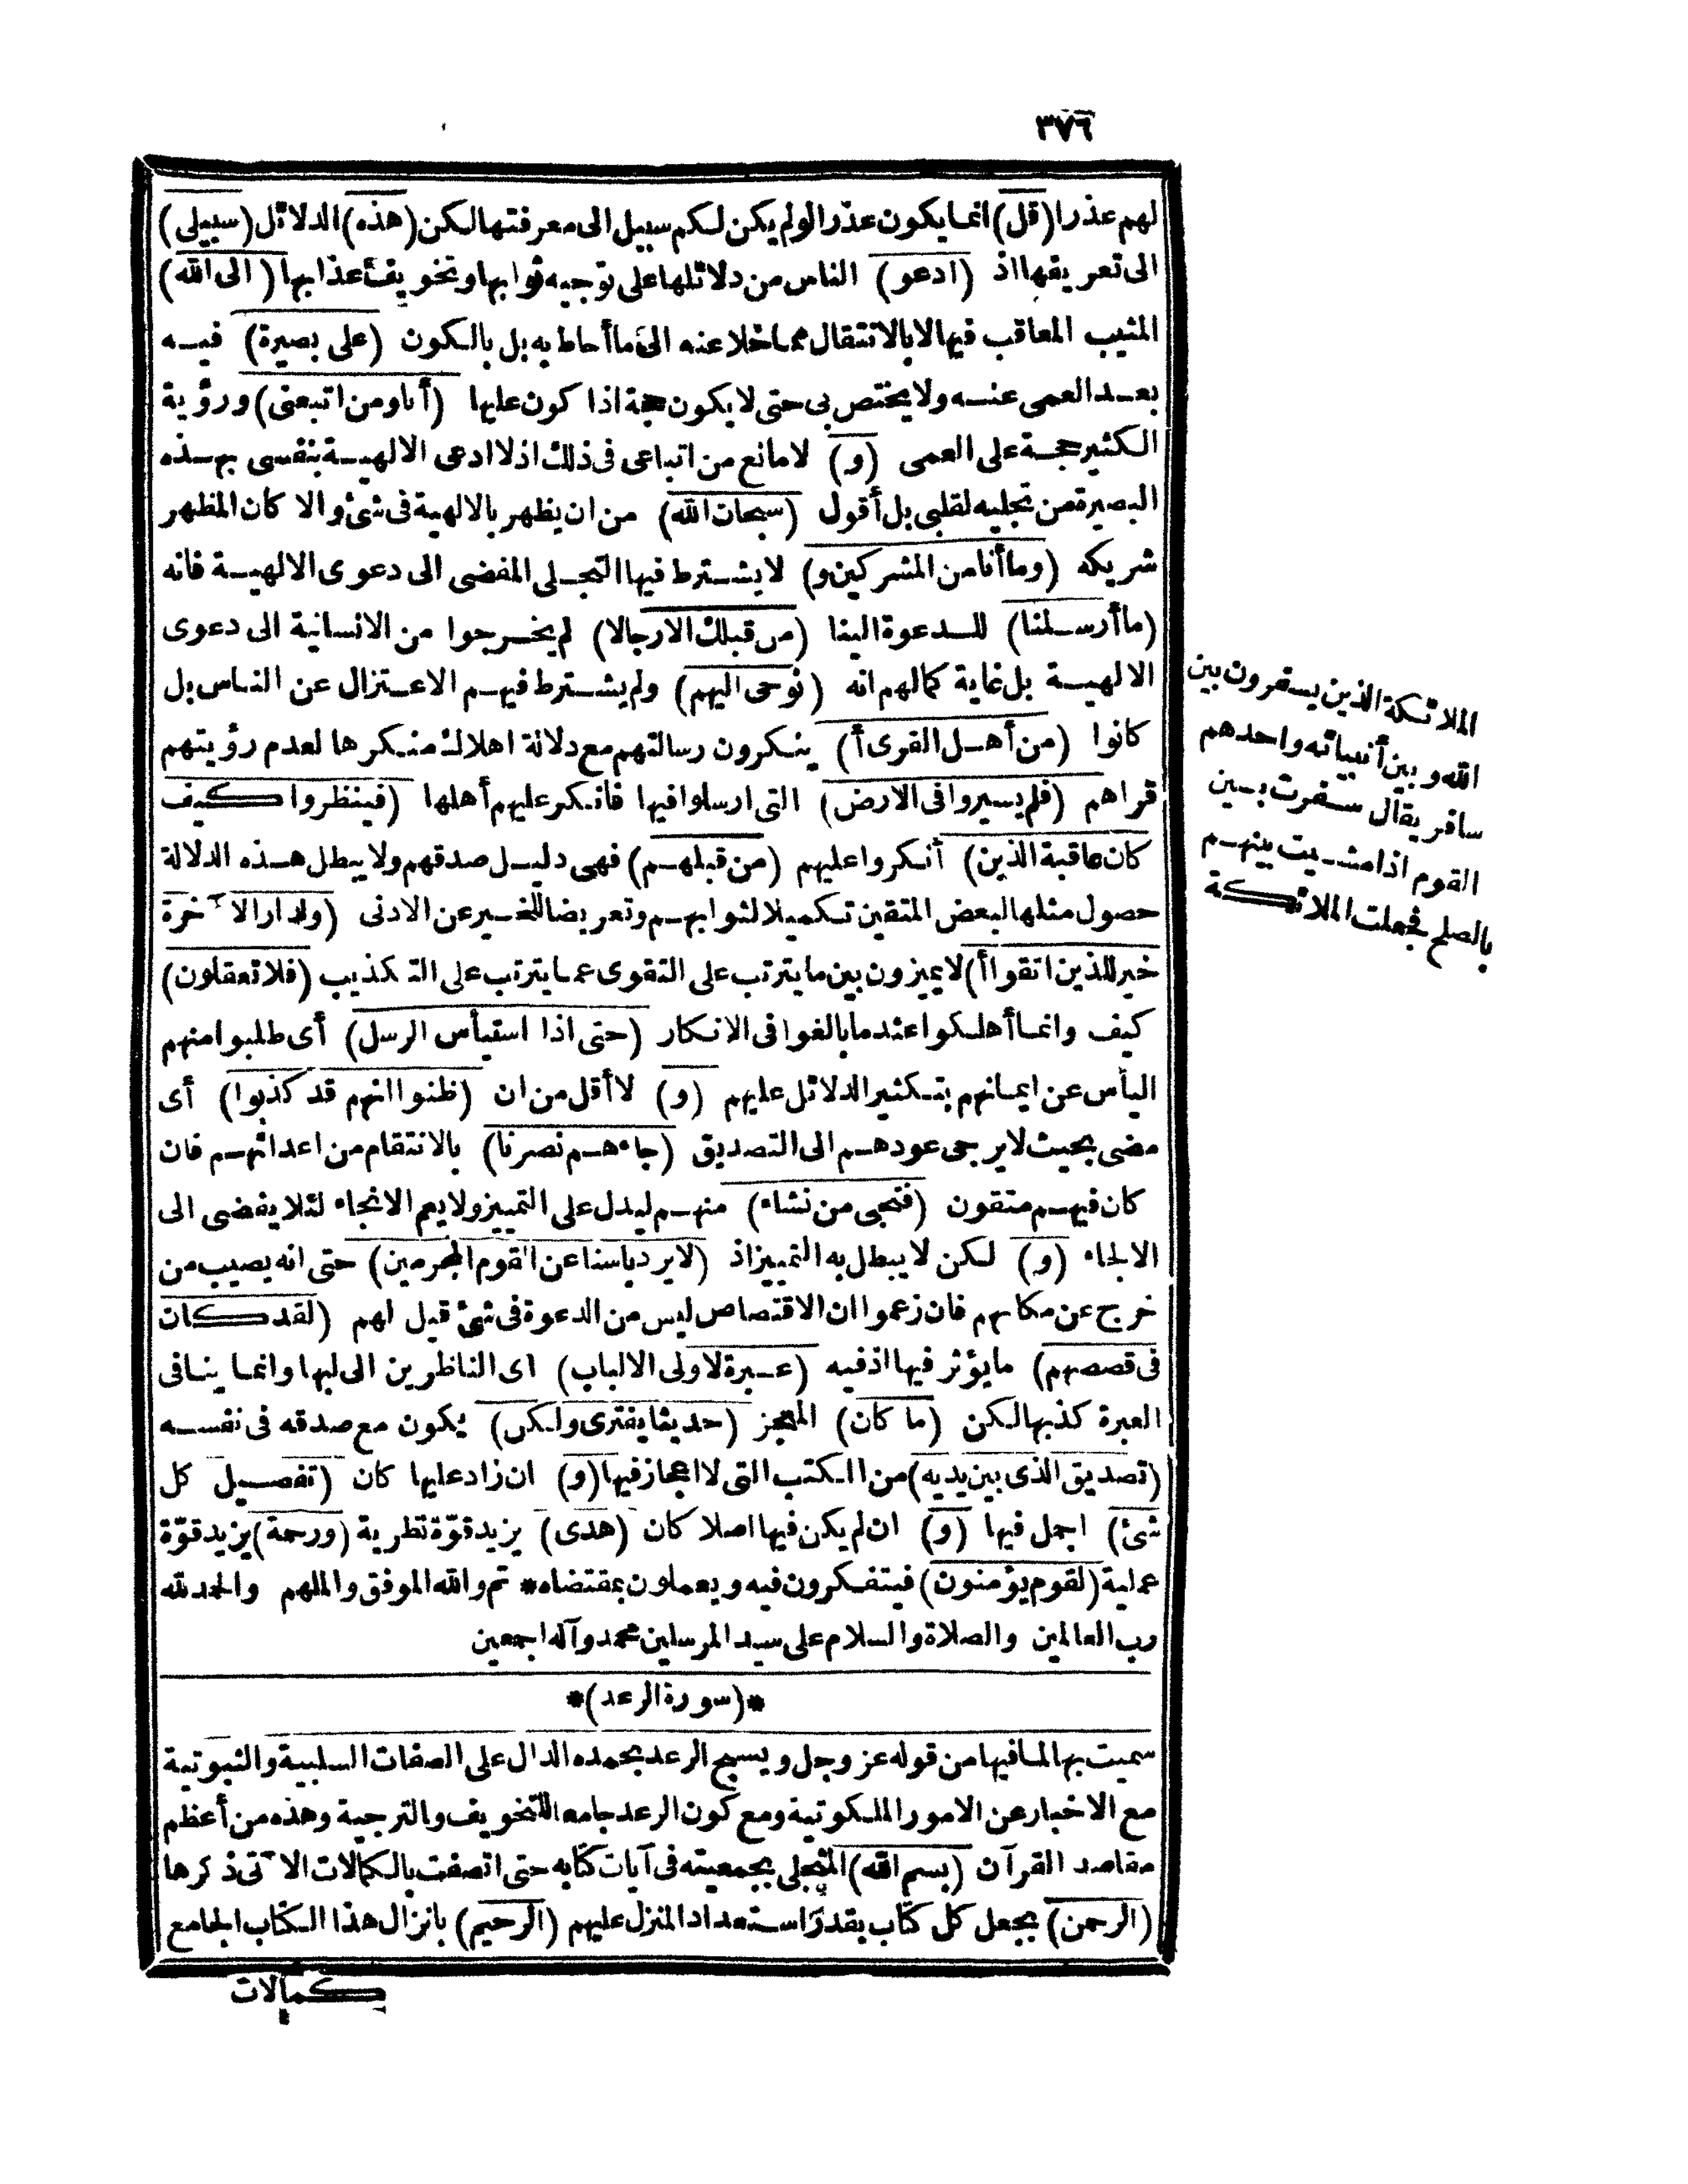 ٣٧٦
لهم عذرا (قل) انما يكون عذرا لو لم يكن لكم سبيل الى معرفتها لكن (هذه) الدلائل (سبيلى)
الى تعريفها اذ (ادعو) الناس من دلائلها على توجيه ثوابها وتخويف عذابها (الى الله)
المثيب المعاقب فيها لا بالانتقال مما خلا عنه الى ما أحاط به بل بالكون (على بصيرة) فيه
بعد العمى عنه ولا يختص بى حتى لا يكون حجة اذا كون عليها (أنا ومن اتبعنى) ورؤية
الكثير حجة على العمى (و) لا مانع من اتباعى فى ذلك اذ لا ادعى الالهية بنفسى بهذه
البصيرة من تجليه لقلبى بل أقول (سبحان الله) من ان يظهر بالالهية فى شئ والا كان المظهر
شريكه (وما أنا من المشركين و) لا يشترط فيها التجلى المفضى الى دعوى الالهية فانه
(ما أرسلنا) للدعوة الينا (من قبلك الا رجالا) لم يخرجوا من الانسانية الى دعوى
الالهية بل غاية كمالهم انه (نوحى اليهم) ولم يشترط فيهم الاعتزال عن الناس بل
كانوا (من أهل القرى أ) ينكرون رسالتهم مع دلالة اهلاك منكرها لعدم رؤيتهم
قراهم (فلم يسيروا فى الارض) التى ارسلوا فيها فانكر عليهم أهلها (فينظروا كيف
كان عاقبة الذين) أنكروا عليهم (من قبلهم) فهى دليل صدقهم ولا يبطل هذه الدلالة
حصول مثلها لبعض المتقين تكميلا لثوابهم وتعريضا للغير عن الادنى (ولدار الآخرة
خير للذين اتقوا أ) لا يميزون بين ما يترتب على التقوى عما يترتب على التكذيب (فلا تعقلون)
كيف وانما أهلكوا عندما بالغوا فى الانكار (حتى اذا استيأس الرسل) أى طلبوا منهم
اليأس عن ايمانهم بتكثير الدلائل عليهم (و) لا أقل من ان (ظنوا انهم قد كذبوا) أى
مضى بحيث لا يرجى عودهم الى التصديق (جاءهم نصرنا) بالانتقام من اعدائهم فان
كان فيهم متقون (فنجى من نشاء) منهم ليدل على التمييز ولا يعم الانجاء لئلا يفضى الى
الالجاء (و) لكن لا يبطل به التمييز اذ (لا يرد باسنا عن القوم المجرمين) حتى انه يصيب من
خرج عن مكانهم فان زعموا ان الاقتصاص ليس من الدعوة فى شئ قيل لهم (لقد كان
فى قصصهم) ما يؤثر فيها اذ فيه (عبرة لاولى الالباب) اى الناظرين الى لبها وانما ينافى
العبرة كذبها لكن (ما كان) المعجز (حديثا يفترى ولكن) يكون مع صدقه فى نفسه
(تصديق الذى بين يديه) من الكتب التى لا اعجاز فيها (و) ان زاد عليها كان (تفصيل كل
شئ) اجمل فيها (و) ان لم يكن فيها اصلا كان (هدى) يزيد قوّة نظرية (ورحمة) يزيد قوّة
عملية (لقوم يؤمنون) فيتفكرون فيه ويعملون بمقتضاه * تم والله الموفق والملهم والحمد لله
رب العالمين والصلاة والسلام على سيد المرسلين محمد وآله اجمعين
*(سورة الرعد)*
سميت بها لما فيها من قوله عز وجل ويسبح الرعد بحمده الدال على الصفات السلبية والثبوتية
مع الاخبار عن الامور الملكوتية ومع كون الرعد جامعا للتخويف والترجية وهذه من أعظم
مقاصد القرآن (بسم الله) المتجلى بجمعيته فى آيات كتابه حتى اتصفت بالكمالات الآتى ذكرها
(الرحمن) بجعل كل كتاب بقدر استعداد المنزل عليهم (الرحيم) بانزال هذا الكتاب الجامع
بكمالات
الملائكة الذين يسفرون بين
الله وبين أنبيائه واحدهم
سافر يقال سفرت بين
القوم اذا مشيت بينهم
بالصلح فجعلت الملائكة